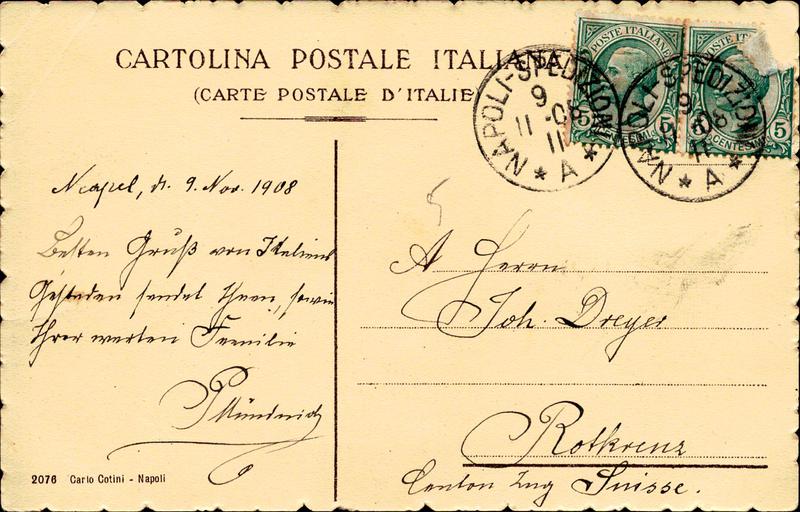 CARTOLINA POSTALE ITALIANA
(CARTE POSTALE D'ITALIE
POSTE ITALIANE
5 5
CENTESIMI
POSTE ITALI
5 5
CENTESIMI
NAPOLI-SPEDIZIONI
9
11 -08
11
* A *
NAPOLI-SPEDIZIONI
9
11 -08
11
* A *
5
Neapel, d. 9. Nov. 1908
Besten Gruß von Italiens
Gestaden sendet Ihnen, sowie
Ihrer werten Familie
A Herrn
Joh. Dreyer
Rotkreuz
Canton Zug Suisse.
2076 Carlo Cotini - Napoli